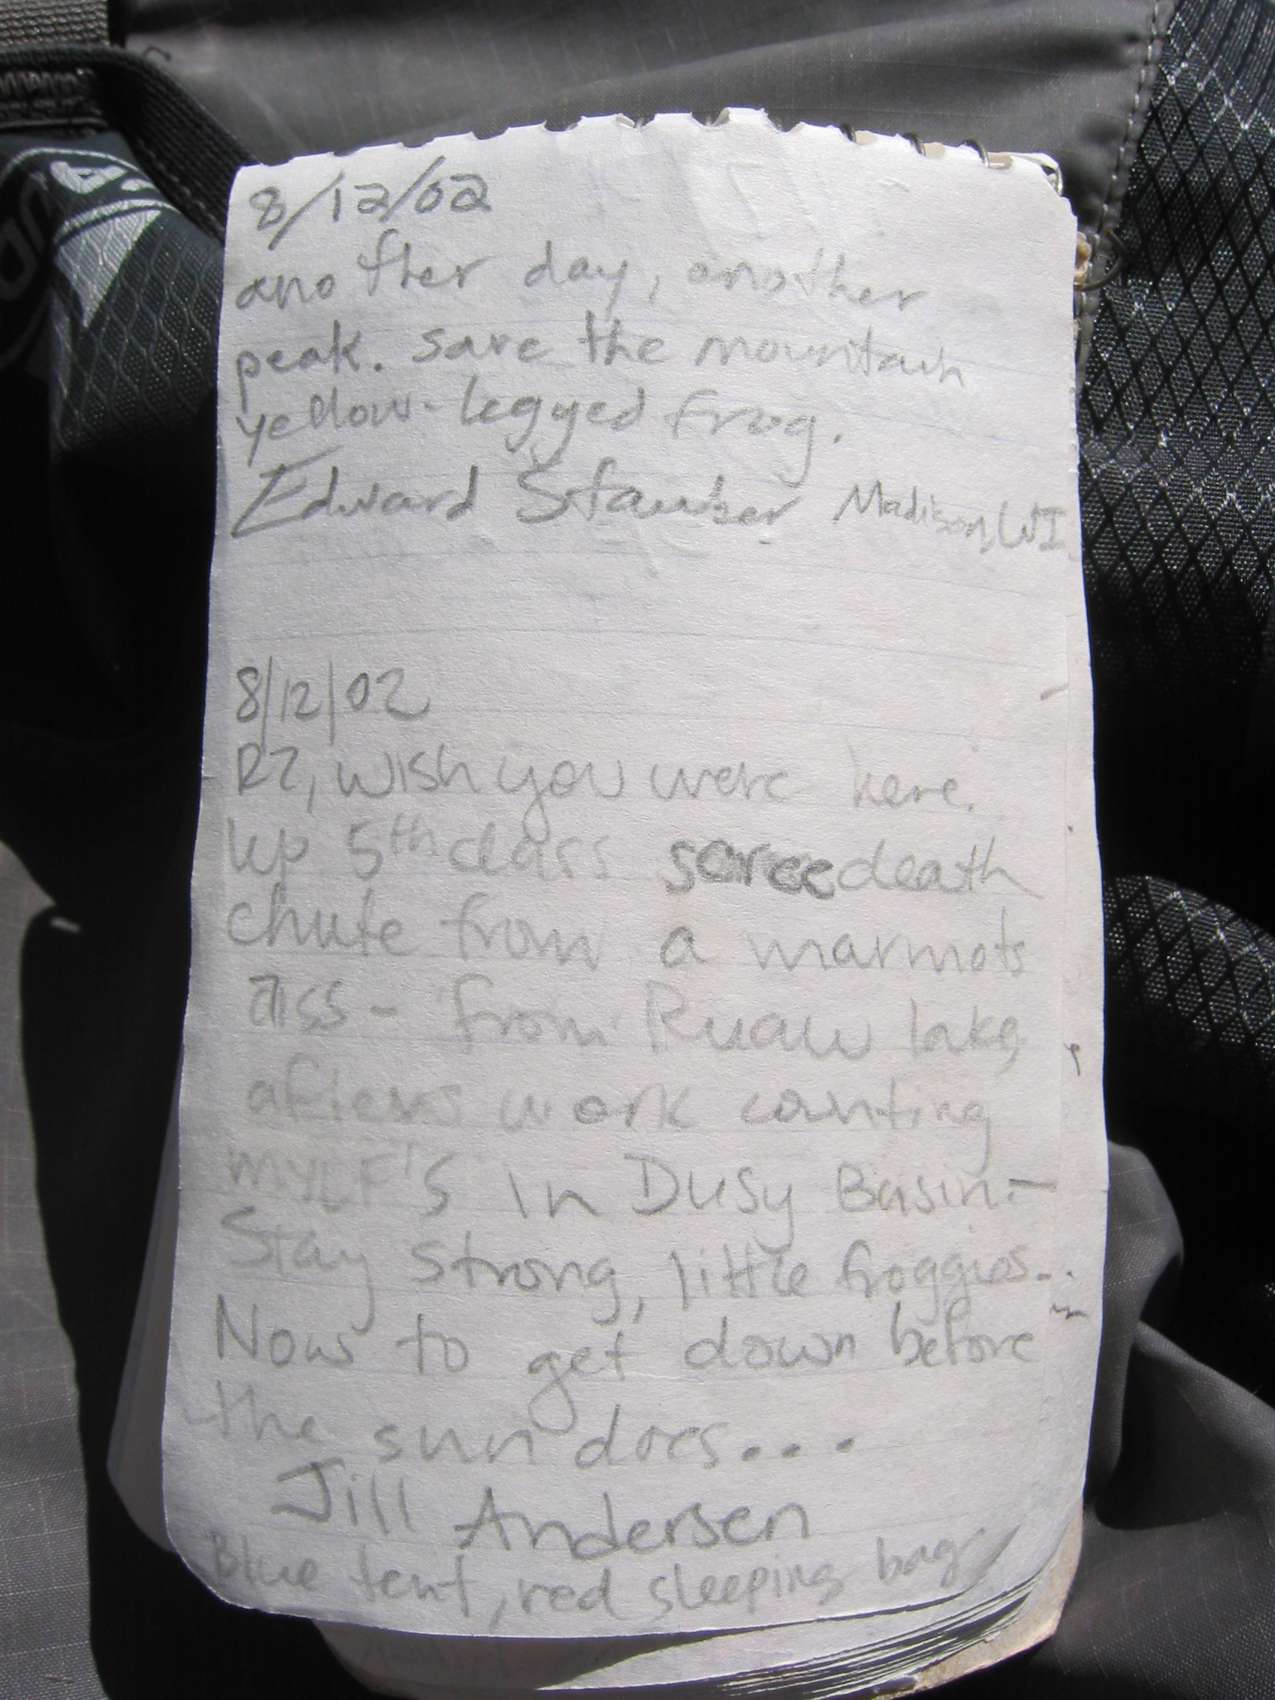 8/12/02
another day, another
peak. save the mountain
yellow-legged frog.
Edward Stauber Madison, WI
8/12/02
RZ, wish you were here.
Up 5th class scree death
chute from a marmots
from Ruaw lake,
afters work counting
MYLF'S in Dusy Basin-
Stay strong, little froggies..
Now to get down before
the sun does...
Jill Andersen
Blue tent, red sleeping bag